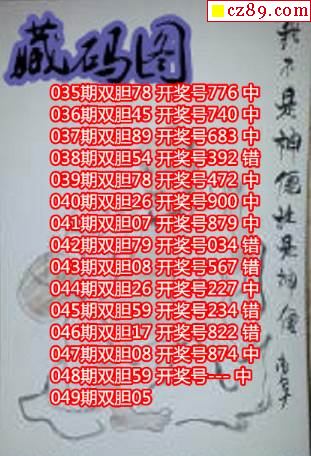 cz89.com
藏码图
我不是神但她是神僊
035期双胆78 开奖号776 中
036期双胆45 开奖号740 中
037期双胆89 开奖号683 中
038期双胆54 开奖号392 错
039期双胆78 开奖号472 中
040期双胆26 开奖号900 中
041期双胆07 开奖号879 中
042期双胆79 开奖号034 错
043期双胆08 开奖号567 错
044期双胆26 开奖号227 中
045期双胆59 开奖号234 错
046期双胆17 开奖号822 错
047期双胆08 开奖号874 中
048期双胆59 开奖号--- 中
049期双胆05